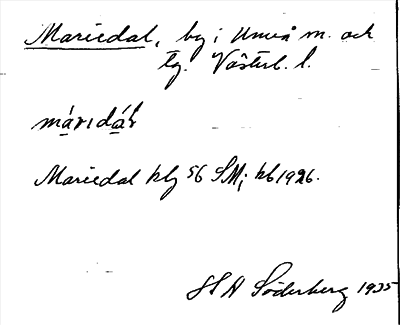 Mariedal, by i Umeå m. och
tg. Västerb. l.
Mariedal klg 56 SM; kb 1926.
Söderberg 1935